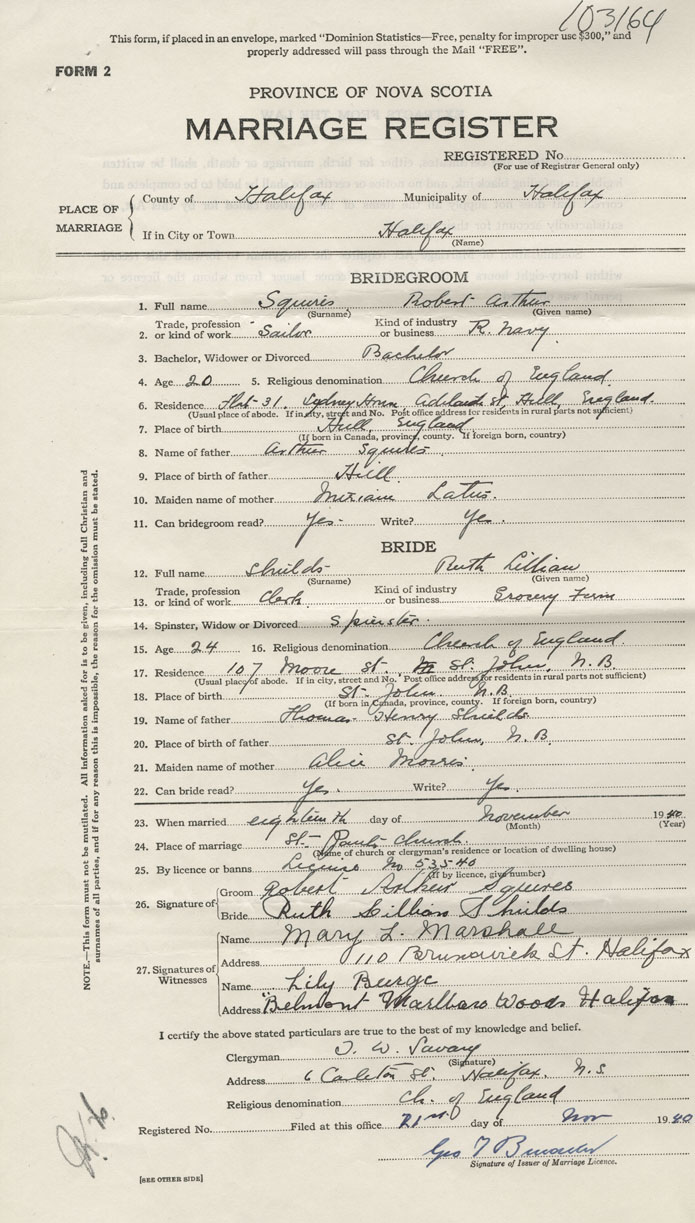 103164
This form, if placed in an envelope, marked “Dominion Statistics—Free, penalty for improper use $300,” and
properly addressed will pass through the Mail “FREE”.
FORM 2
PROVINCE OF NOVA SCOTIA
MARRIAGE REGISTER
REGISTERED No.
(For use of Registrar General only)
PLACE OF MARRIAGE
County of Halifax Municipality of Halifax
If in City or Town Halifax
(Name)
BRIDEGROOM
1. Full name Squires Robert Arthur
(Surname) (Given name)
2. Trade, profession or kind of work Sailor Kind of industry or business R. Navy
3. Bachelor, Widower or Divorced Bachelor
4. Age 20 5. Religious denomination Church of England
6. Residence Flat-31. Sydney House Adelaide St. Hull, England.
(Usual place of abode. If in city, street and No. Post office address for residents in rural parts not sufficient)
7. Place of birth Hull, England
(If born in Canada, province, county. If foreign born, country)
8. Name of father Arthur Squires
9. Place of birth of father Hull
10. Maiden name of mother Miriam Latus.
11. Can bridegroom read? Yes- Write? Yes.
BRIDE
12. Full name Shields Ruth Lillian
(Surname) (Given name)
13. Trade, profession or kind of work Clerk Kind of industry or business Grocery Firm
14. Spinster, Widow or Divorced Spinster.
15. Age 24 16. Religious denomination Church of England
17. Residence 107 Moore St. St. John, N.B.
(Usual place of abode. If in city, street and No. Post office address for residents in rural parts not sufficient)
18. Place of birth St- John, N.B.
(If born in Canada, province, county. If foreign born, country)
19. Name of father Thomas Henry Shields
20. Place of birth of father St. John, N.B.
21. Maiden name of mother Alice Morris
22. Can bride read? Yes. Write? Yes.
23. When married eighteenth day of November 1940
(Month) (Year)
24. Place of marriage St- Paul's church.
(Name of church or clergyman's residence or location of dwelling house)
25. By licence or banns Licence No 53540
(If by licence, give number)
26. Signature of
Groom Robert Arthur Squires
Bride Ruth Lillian Shields
27. Signatures of Witnesses
Name Mary L. Marshall
Address 110 Brunswick St. Halifax
Name Lily Burge
Address "Belmont Marlboro Woods Halifax
I certify the above stated particulars are true to the best of my knowledge and belief.
Clergyman T. W. Savary
(Signature)
Address 6 Carleton St. Halifax. N.S
Religious denomination Ch. of England
Registered No. Filed at this office 21st day of Nov 1940
Geo T
Signature of Issuer of Marriage Licence.
[SEE OTHER SIDE]
NOTE.—This form must not be mutilated. All information asked for is to be given, including full Christian and
surnames of all parties, and if for any reason this is impossible, the reason for the omission must be stated.